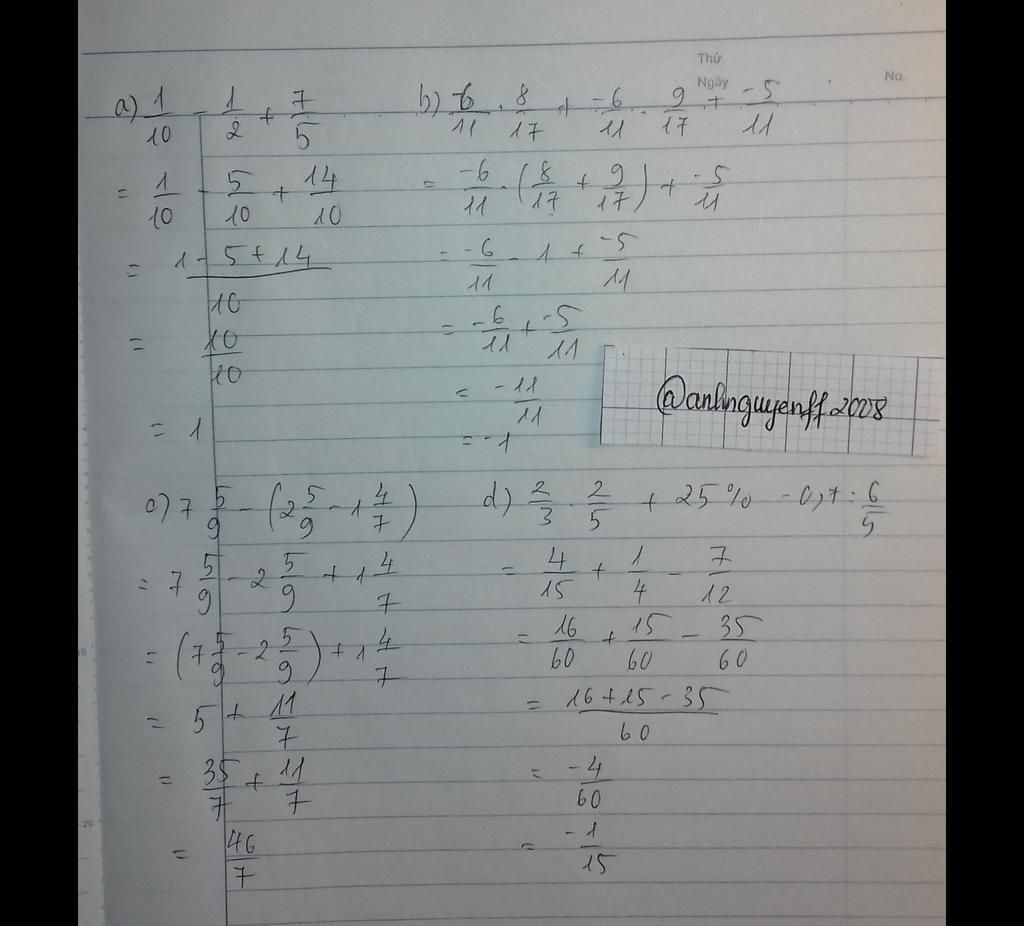 Thứ
Ngày
No.
a) 1/10 - 1/2 + 7/5
= 1/10 - 5/10 + 14/10
= (1 - 5 + 14)/10
= 10/10
= 1
b) -6/11 . 8/17 + -6/11 . 9/17 + -5/11
= -6/11 . (8/17 + 9/17) + -5/11
= -6/11 . 1 + -5/11
= -6/11 + -5/11
= -11/11
= -1
@anhnguyenff2008
c) 7 5/9 - (2 5/9 - 1 4/7)
= 7 5/9 - 2 5/9 + 1 4/7
= (7 5/9 - 2 5/9) + 1 4/7
= 5 + 11/7
= 35/7 + 11/7
= 46/7
d) 2/3 . 2/5 + 25% - 0,7 : 6/5
= 4/15 + 1/4 - 7/12
= 16/60 + 15/60 - 35/60
= (16 + 15 - 35)/60
= -4/60
= -1/15